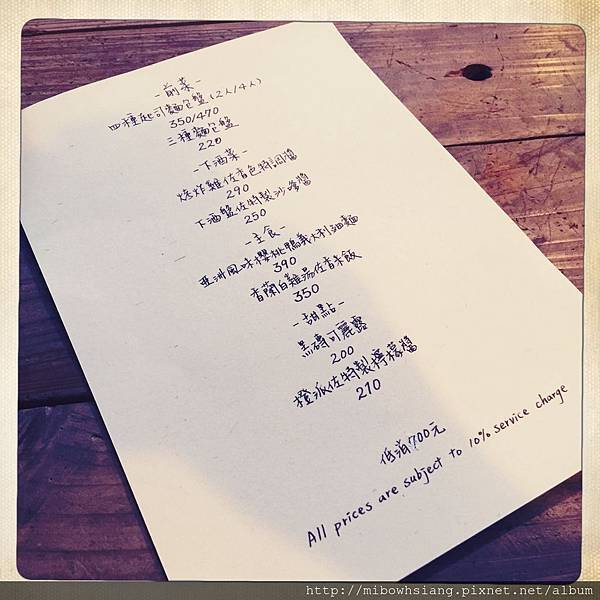 -前菜-
四種起司麵包盤(2人/4人)
350/470
三種麵包盤
220
-下酒菜-
烤炸雞佐香色特調醬
290
下酒盤佐特製沙嗲醬
250
-主食-
亞洲風味櫻桃鴨義大利細麵
390
香蘭白雞湯佐香米飯
350
-甜點-
黑磚可麗露
200
橙派佐特製檸檬醬
210
低消700元
All prices are subject to 10% service charge
http://mibowhsiang.pixnet.net/album